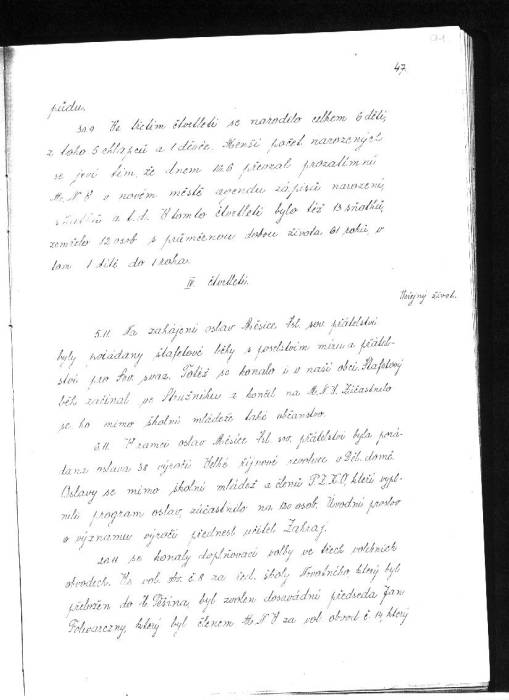 91.
47.
půdu.
30.9. Ve třetím čtvrtletí se narodilo celkem 6 dětí,
z toho 5 chlapců a 1 děvče. Menší počet narozených
se jeví tím, že dnem 12.6 převzal prozatímní
M.N.V. v novém městě agendu zápisů narození,
sňatků a t.d. V tomto čtvrtletí bylo též 13 sňatků,
zemřelo 12 osob s průměrnou dobou života 61 roků, v
tom 1 dítě do 1 roka.
IV čtvrtletí.
Veřejný život.
5.11. Na zahájení oslav Měsíce čsl. sov. přátelství
byly pořádány štafetové běhy s poselstvím míru a přátel-
ství pro Sov. svaz. Totéž se konalo i v naší obci. Štafetový
běh začínal ve Stružníku a končil na M.N.V. Zúčastnilo
se ho mimo školní mládeže také občanstvo.
6.11. V rámci oslav Měsíce čsl. sov. přátelství byla pořá-
dána oslava 38 výročí Velké říjnové revoluce v Děl. domě.
Oslavy se mimo školní mládež a členů P.Z.K.O, kteří vypl-
nili program oslav, zúčastnilo na 120 osob. Úvodní proslov
o významu výročí přednesl učitel Zahraj.
20.11 se konaly doplňovací volby ve třech volebních
obvodech. Ve vol. ob. č. 8 za řed. školy Novotného který byl
přeložen do Č. Těšína, byl zvolen dosavádní předseda Jan
Folwarczny, který byl členem M.N.V za vol. obvod č. 14, který